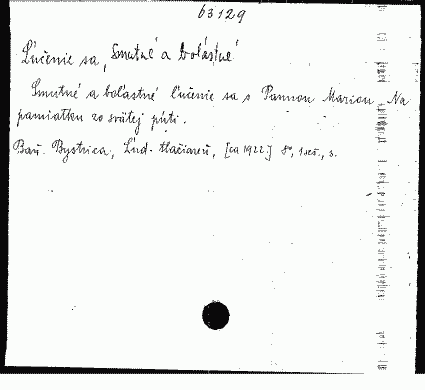 63129
Ľúčenie sa, Smutné a boľastné
Smutné a boľastné ľúčenie sa s Pannou Mariou. Na
pamiatku zo svätej púti.
Baň. Bystrica, Ľud. tlačiareň, [ca 1922.] 8°, 1 seš., s.